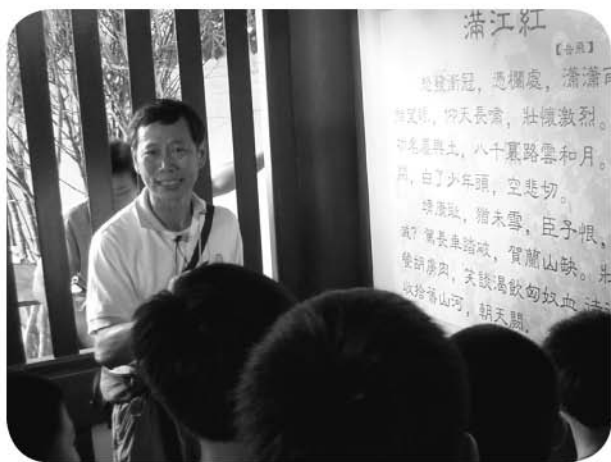 滿江紅
【岳飛】
怒髮衝冠，憑欄處，瀟瀟雨
抬望眼，仰天長嘯，壯懷激烈。
功名塵與土，八千裏路雲和月。
閒，白了少年頭，空悲切。
靖康耻，猶未雪，臣子恨，
滅？駕長車踏破，賀蘭山缺。壯
餐胡虜肉，笑談渴飲匈奴血，待
收拾舊山河，朝天闕。